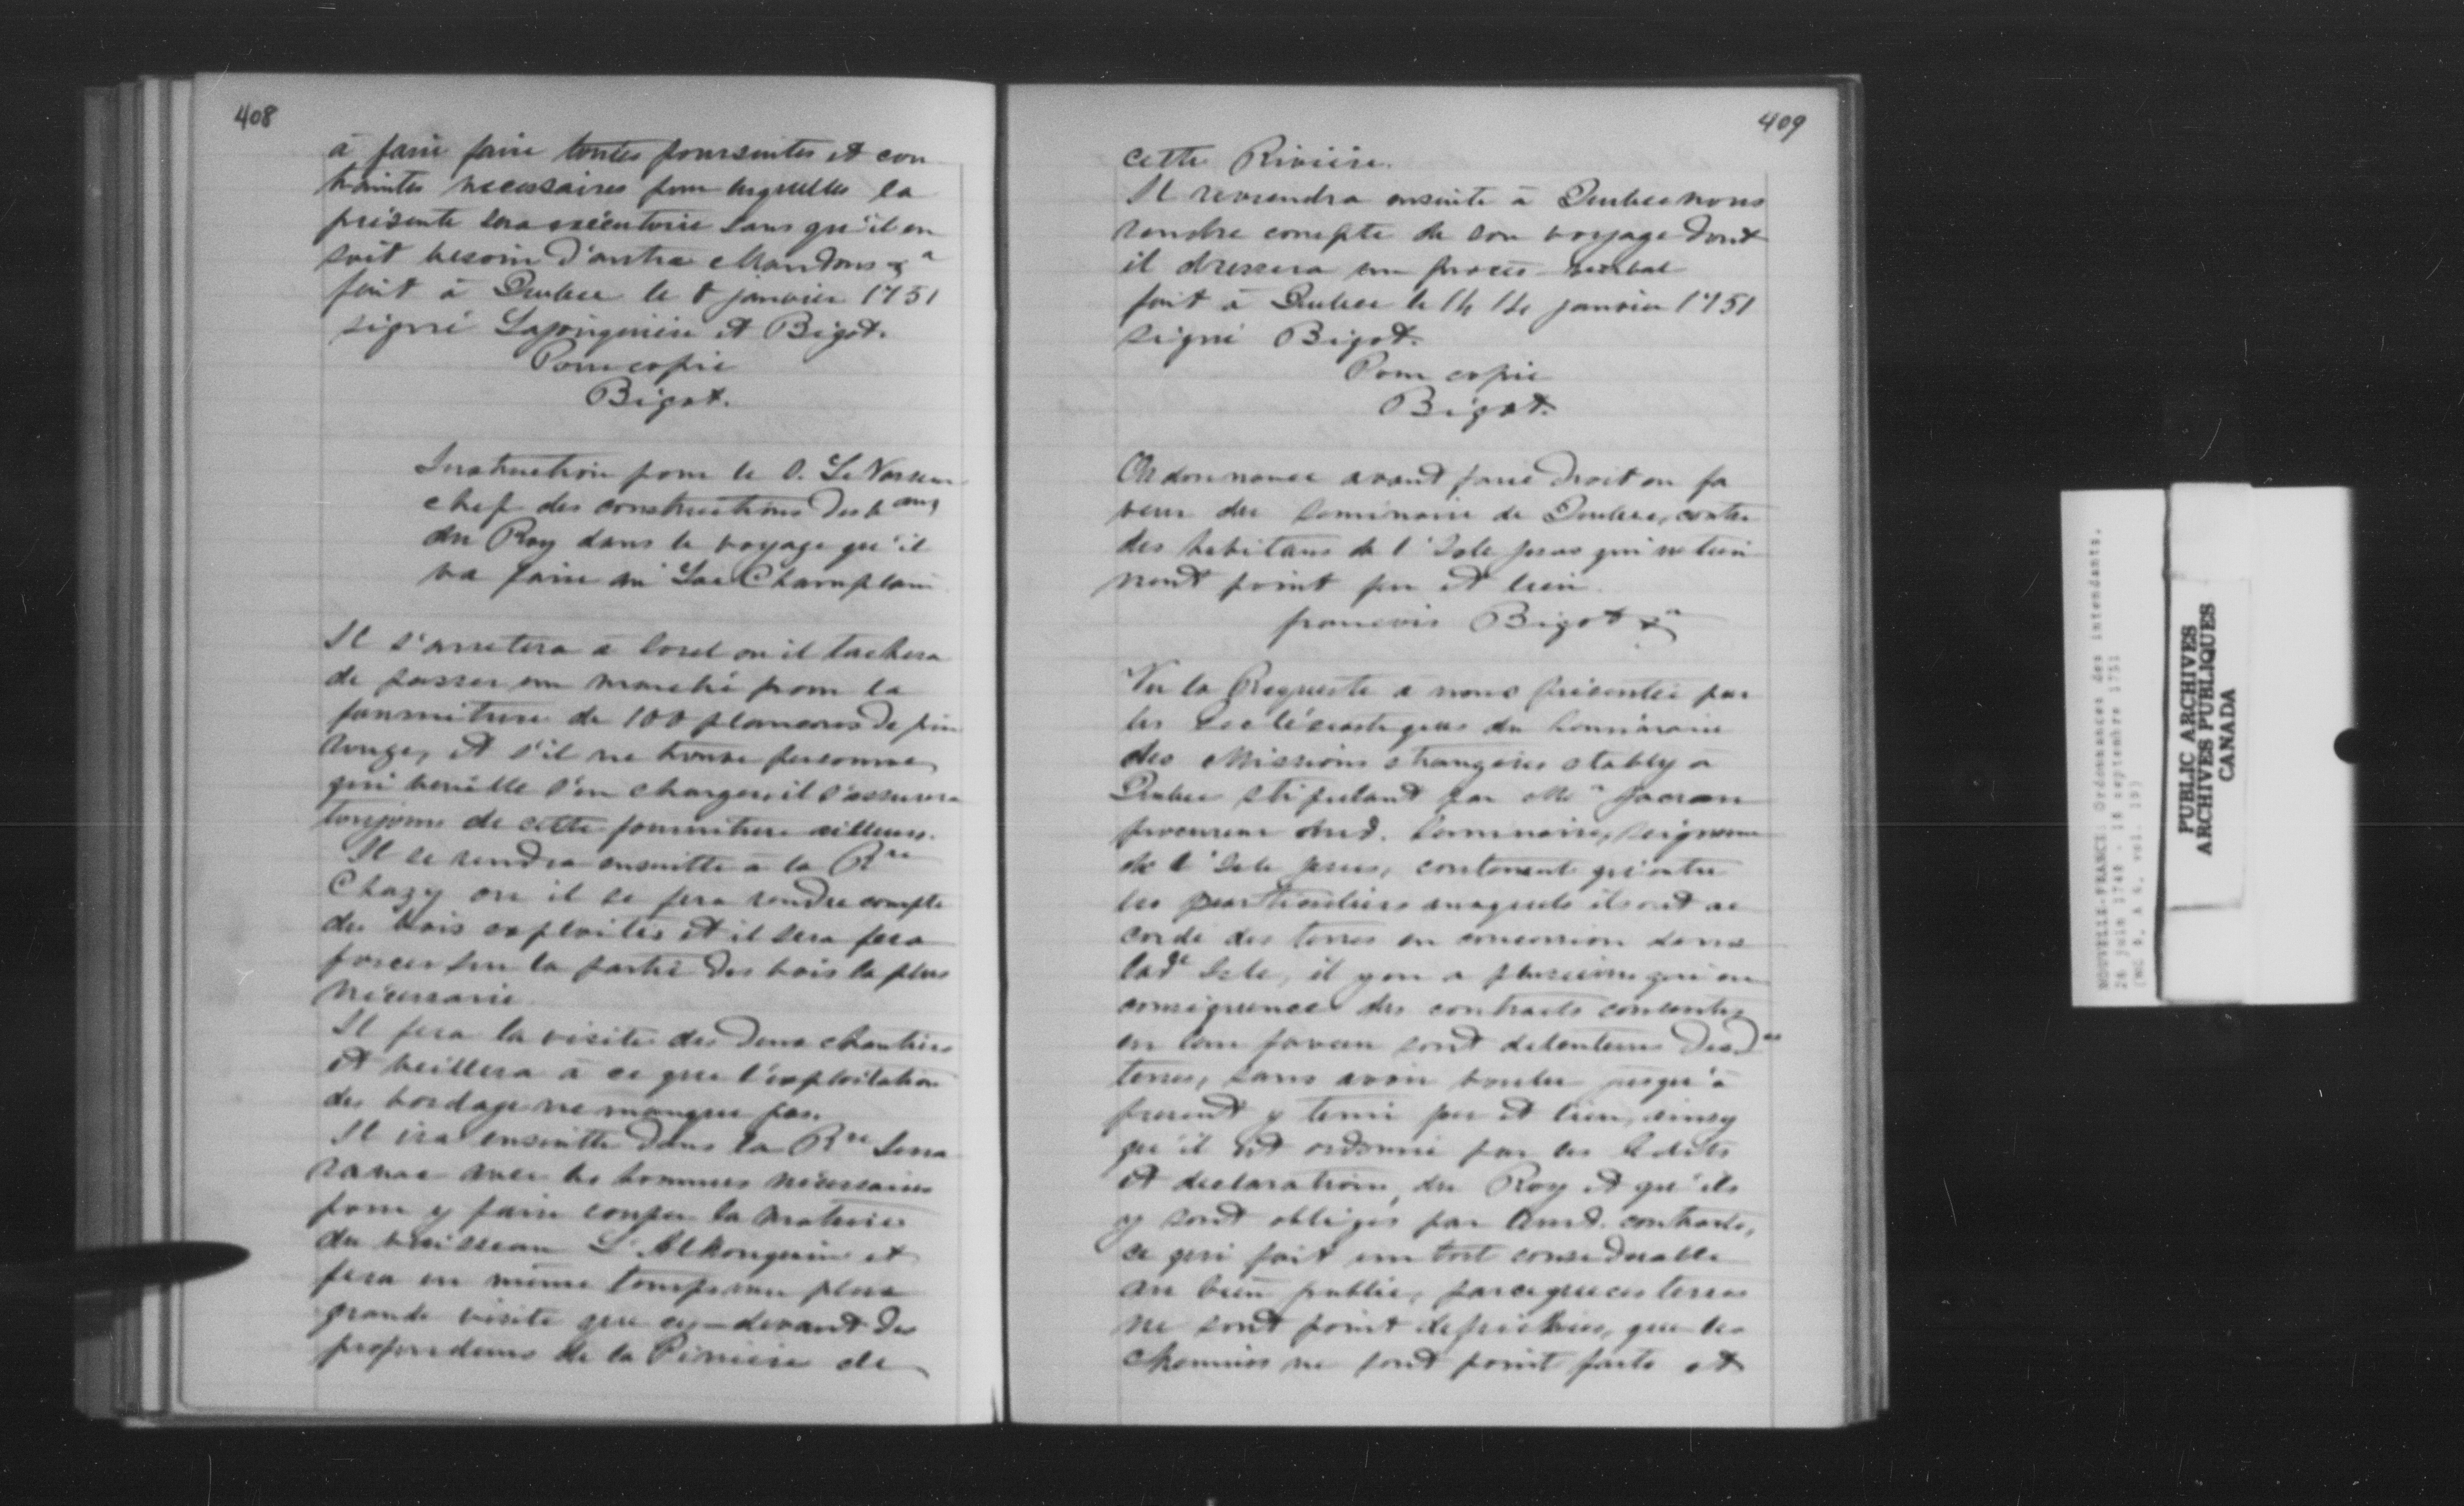 408
à faire faire toutes poursuites et con
traintes necessaires pour lesquelles la
présente sera exécutoire sans qu'il en
soit besoin d'autre Mandons &a
fait à Quebec le 8 janvier 1751
signé Lajonquiere et Bigot.
Pour copie
Bigot.
Instruction pour le S. Le Vasseur
chef des constructions des vaux
du Roy dans le voyage qu'il
va faire au Lac Champlain
Il s'arretera a Sorel ou il tachera
de passer un marché pour la
fourniture de 100 plancons de pin
rouge, et s'il ne trouve personne
qui veuille s'en charger il s'assurera
toujours de cette fourniture ailleurs.
Il se rendra ensuitte à la Rre
Chazy ou il se fera rendre compte
des bois exploités et il sera fera
forcer sur la partie des bois la plus
nécessaire
Il fera la visite des deux chantiers
et veillera à ce que l'exploitation
des bordage ne manque pas.
Il ira ensuitte dans la Rre Sara
ranac avec les hommes nécessaires
pour y faire couper la mature
du ruisseau L'Alkonquin et
fera en même temps une plus
grande visite que cy-devant des
profondeurs de la Piniere de
409
cette Riviere.
Il reviendra ensuite à Quebec nous
rendre compte de son voyage dont
il dressera un procès-verbal
fait à Quebec le 14 janvier 1751
signé Bigot.
Pour copie
Bigot.
Ordonnance avant faire droit en fa
veur du Seminaire de Quebec, contre
des habitans de l'Isle Jesus qui ne tien
nent point feu et lieu.
francois Bigot &a
Vu la Requeste à nous présentée par
les Ecclésiastiques du Seminaire
des Missions étrangères etably a
Quebec stipulant par Mr Jacrau
procureur dud. Seminaire, seigneur
de l'Isle Jesus, contenant qu'outre
les particuliers auxquels ils ont ac
cordé des terres en concession dans
lade Isle, il y en a plusieurs qui en
conséquence des contracts consentis
en leur faveur sont detenteurs desdes
terres, sans avoir voulu jusqu'à
present y tenir feu et lieu, ainsy
qu'il est ordonné par les Edits
et declarations du Roy et qu'ils
y sont obligés par leurd. contracts,
ce qui fait un tort considerable
au bien public, parceque ces terres
ne sont point defrichées, que les
chemins ne sont point faits et
NOUVELLE-FRANCE: Ordonnances des intendants,
PUBLIC ARCHIVES
ARCHIVES PUBLIQUES
CANADA